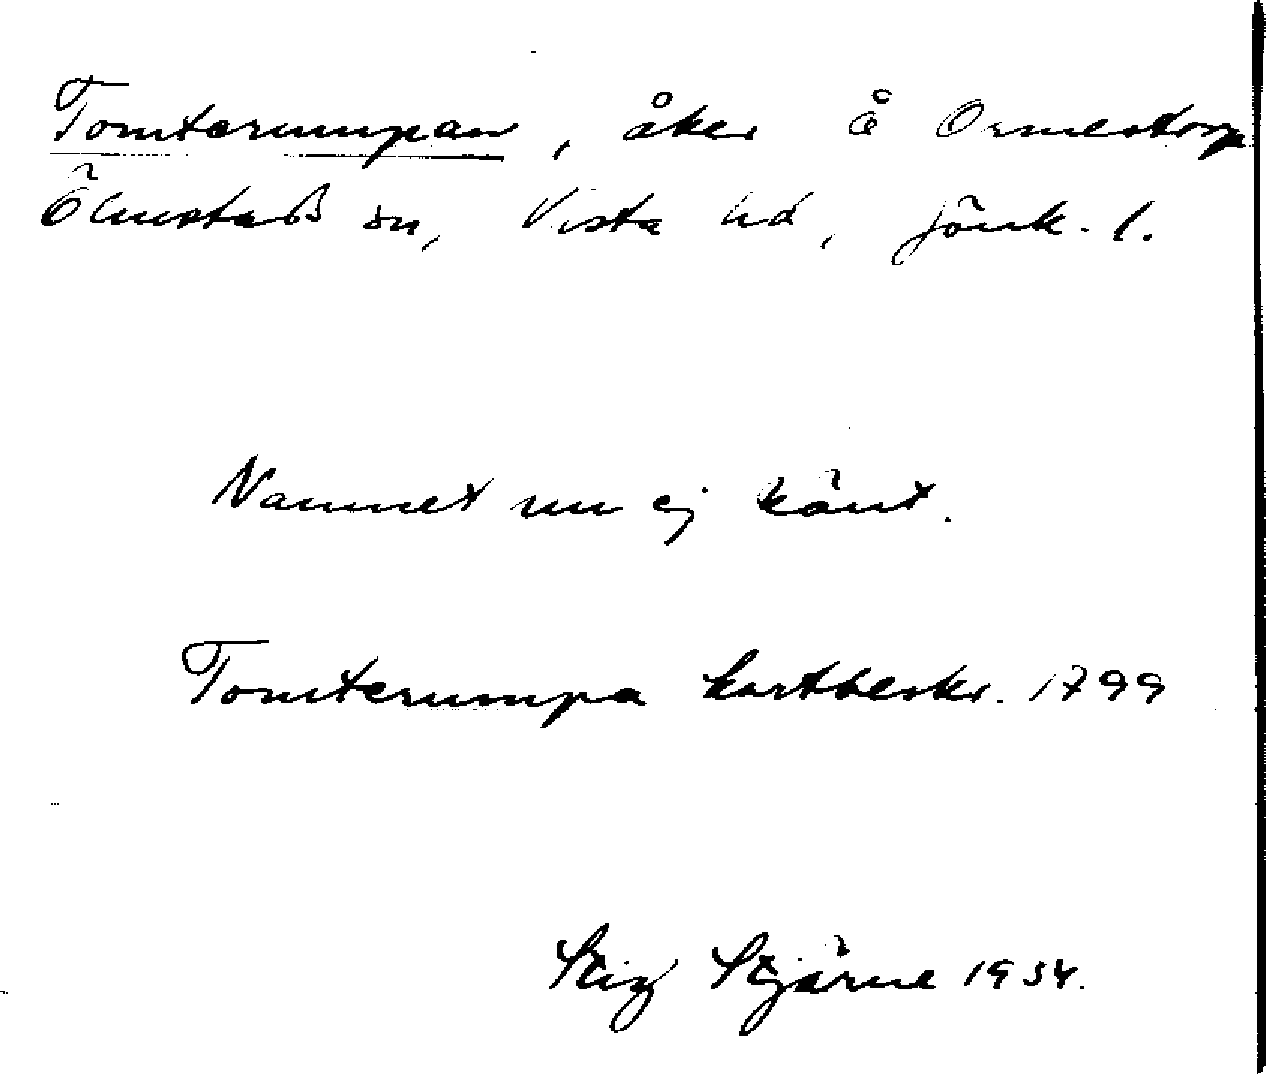 Tomterumpan, åker å Ormestorp
Ölmstads sn, Vista hd, Jönk. l.
Namnet nu ej känt.
Tomterumpa kartbeskr. 1799
Stig Stjärne 1934.